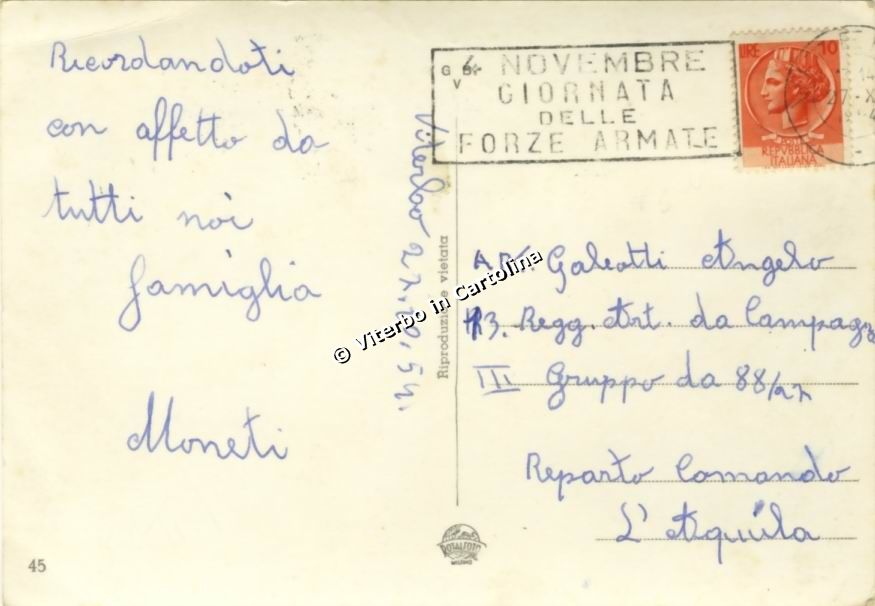 Ricordandoti
con affetto da
tutti noi
famiglia
Moneti
45
Viterbo 27.10.54.
Riproduzione vietata
© Viterbo in Cartolina
ROTALFOTO
MILANO
4 NOVEMBRE
GIORNATA
DELLE
FORZE ARMATE
LIRE 10
REPVBBLICA
ITALIANA
14
27 X
Art. Galeotti Angelo
13. Regg. Art. da Campagna
III Gruppo da 88/27
Reparto Comando
L'Aquila